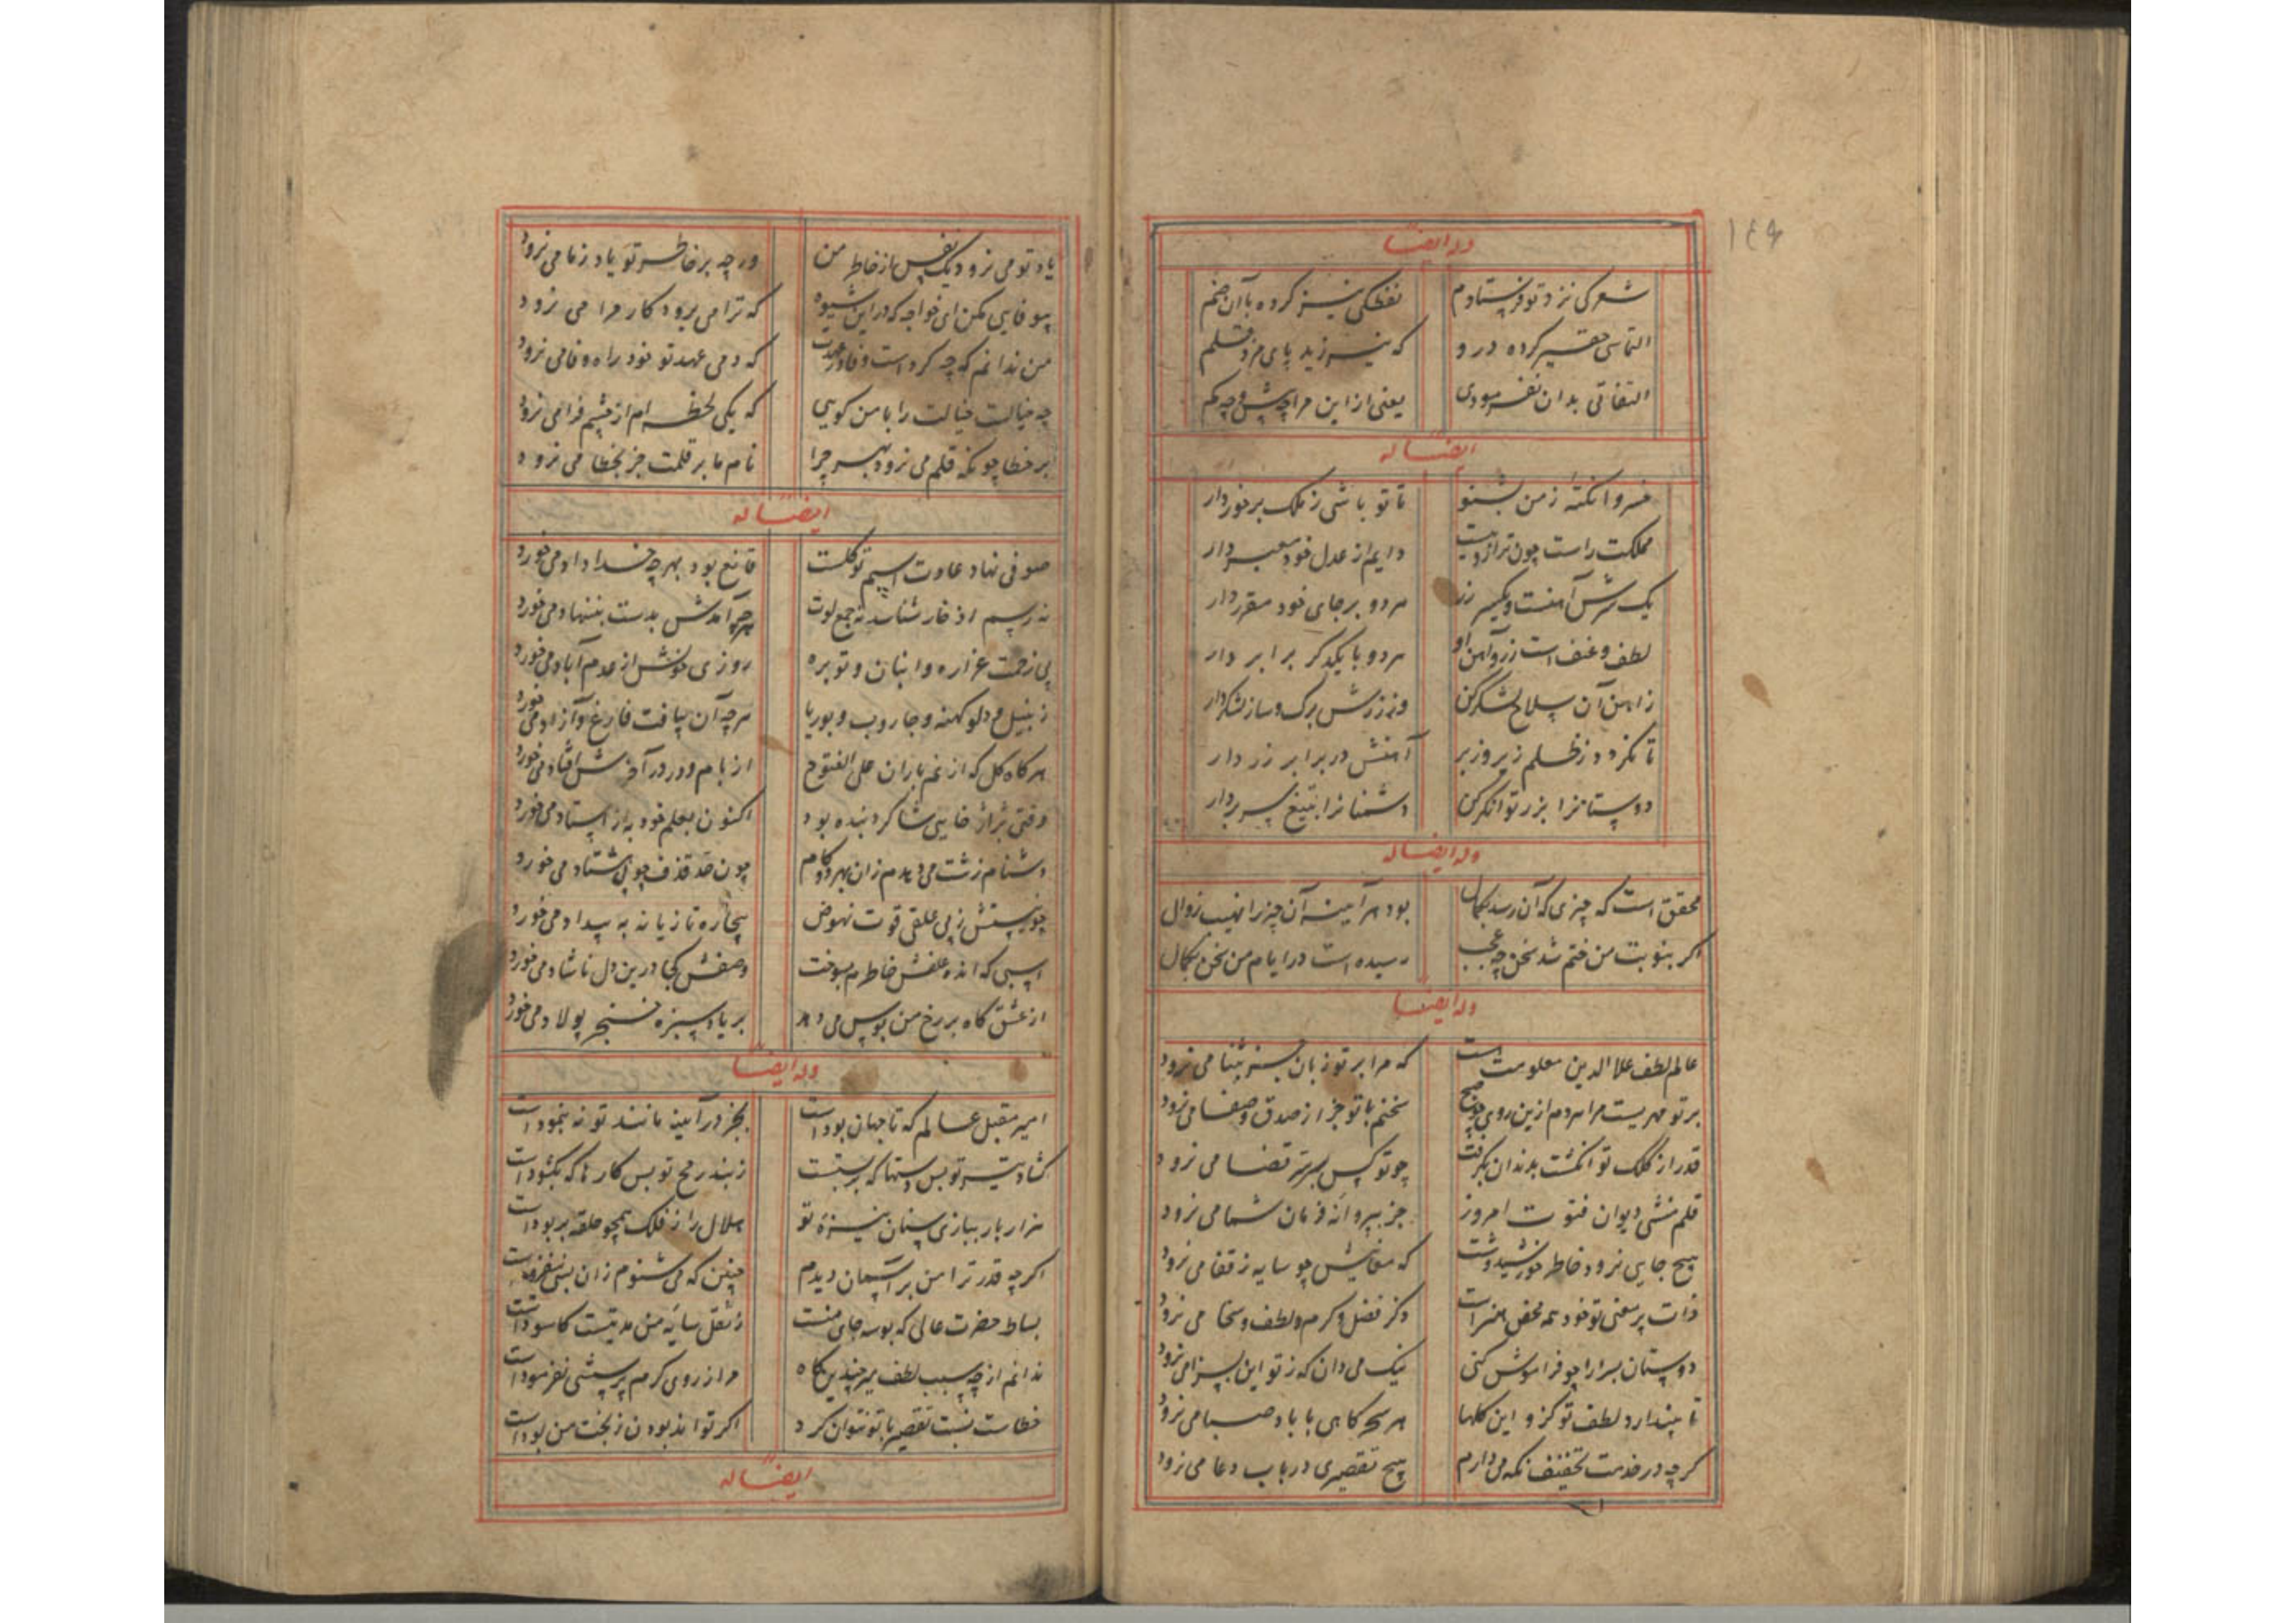 ١٤٩
وله ایضا
شعرکی نزد تو فرستادم نفظکی نیز کرده با آن ضم
التماسی حقیر کرده درو که نیرزید پای مزد قلم
التفاتی بدان نفرمودی یعنی از این مرا چه پیش و چه کم
ایضا له
خسروا نکتهٔ ز من بشنو تا تو باشی ز ملک برخوردار
مملکت راست چون ترازویست دایم از عدل خود معبر دار
یک سرش آهنست و یکسر زر هر دو بر جای خود مقرر دار
لطف و عنف است زر و آهن او هر دو با یکدگر برابر دار
زاهن آن سلاح لشگر کن وز زرش برک و ساز لشکر دار
تا نکردد ز ظلم زیر و زبر آهنش در برابر زر دار
دوستانرا بزر توانکر کن دشمنانرا بتیغ بر سر دار
وله ایضا له
محقق است که چیزی که آن رسد بکمال بود هر آینه آن چیز را نهیب زوال
اکر بنوبت من ختم شد سخن چه عجب رسیده است در ایام من سخن بکمال
وله ایضا
عالم لطف علاالدین معلومت است که مرا بر تو زبان جز بثنا می نرود
بر تو مهریست مرا هر دم ازین روی چو صبح سخنم با تو جز از صدق و صفا می نرود
قدر از کلک تو انکشت بدندان بکرفت چو تو کس بر سر قضا می نرود
قلم منشی دیوان فتوت امروز جز بپروانه فرمان شما می نرود
هیچ جایی نرود خاطر خورشیدوشت که معانیش چو سایه ز قفا می نرود
ذات پر معنی تو خود همه محض هنر است ذکر فضل و کرم و لطف و سخا می نرود
دوستان بسرا را چو فراموش کنی نیک می دان که ز تو این بسزا می نرود
تا نپندارد لطف تو کزو این کلها هر سحرکاهی با باد صبا می نرود
کرچه در خدمت تخفیف نکه می دارم هیچ تقصیری در باب دعا می نرود
یاد تو می نرود یک نفس از خاطر من ورچه بر خاطر تو یاد ز ما می نرود
بیوفایی مکن ای خواجه که در این شیوه که ترا می برود کار مرا می نرود
من ندانم که چه کرد است وفا در عهدت که دمی عهد تو خود راه وفا می نرود
چه خیالت خیالت را با من کویی که یکی لحظه ام از چشم فرا می نرود
بر خطا چونکه قلم می نرود بهر چرا نام ما بر قلمت جز بخطا می نرود
ایضا له
صوفی نهاد عادت اسبم توکلست قانع بود بهرچه خدا داد می خورد
نه رسم اذخار شناسد نه جمع لوت هرچ آمدش بدست بننهاد می خورد
بی زحمت غراره و انبان و توبره روزی خوش از عدم آباد می خورد
زنبیل و دلو کهنه و جاروب و بوریا هرچه آن بیافت فارغ و آزاد می خورد
هر کاه کل که از نم باران علی الفتوح از بام و در در آخرش افتاد می خورد
وقتی بژاژخایی شاکرد بنده بود اکنون بعلم خود به از استاد می خورد
دشنام زشت می دهدم زان بهر دو کام چون حد قذف چوب هشتاد می خورد
چون نیستش ز بی علفی قوت نهوض بیچاره تازیانه به بیداد می خورد
اسبی که اندوه علفش خاطرم بسوخت وصفش کجا درین دل ناشاد می خورد
از عشق کاه بر رخ من بوس می دهد بر یاد سبزه خنجر پولاد می خورد
وله ایضا
امیر مقبل عالم که تا جهان بود است بجز در آینه مانند تو نه بنمود است
کشاد تیر تو بس دستها که بر بستست ز بند رمح تو بس کارها که بکشود است
هزار بار ببازی سنان نیزه تو هلال را ز فلک همچو حلقه بربود است
اکرچه قدر ترا من بر آسمان دیدم چنین که می شنوم زان بسی بیفزود است
بساط حضرت عالی که بوسه جای منست ز ثقل سایه من مدتیست کاسود است
ندانم از چه سبب لطف میر چندین کاه مرا ز روی کرم پرسشی نفرمود است
خطاست نسبت تقصیر با تو نتوان کرد اکر تواند بودن ز بخت من بود است
ایضا له